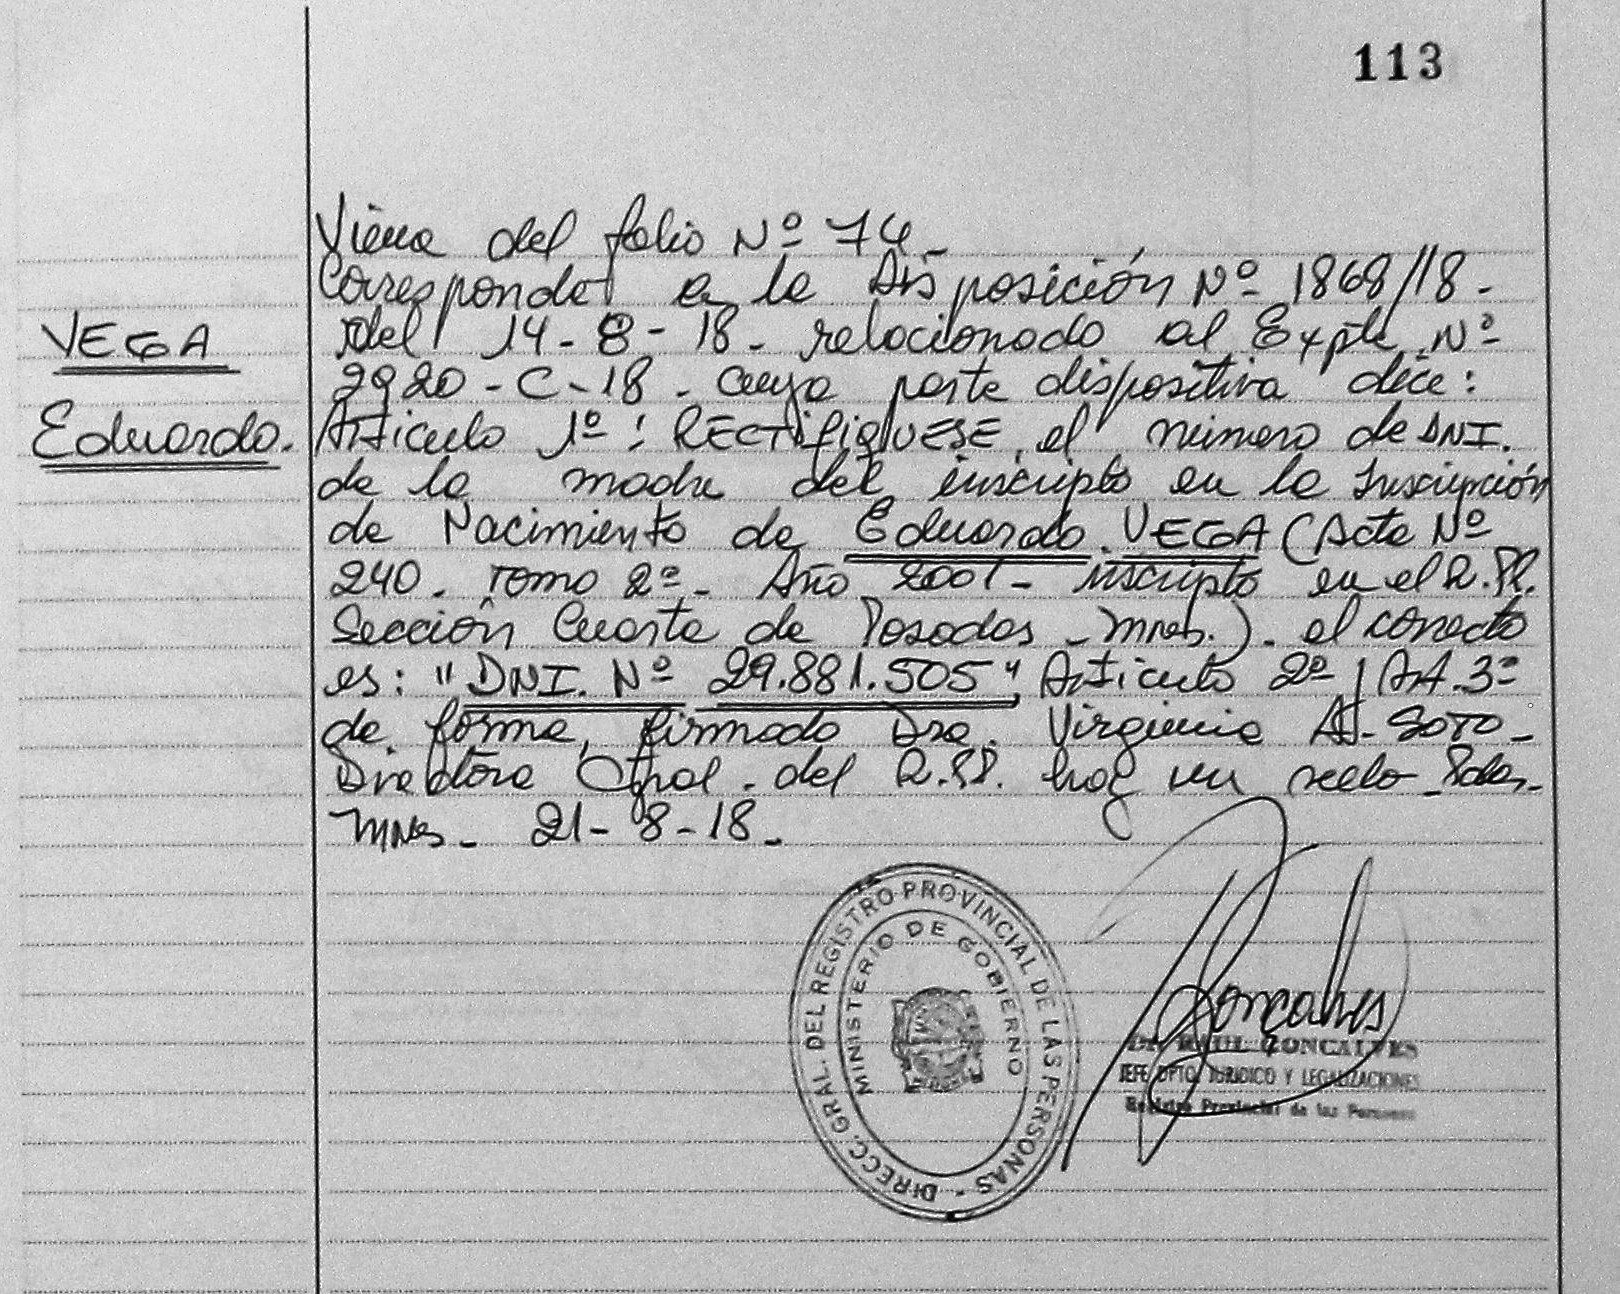 113
Viene del folio Nº 74_
Corresponde a la Disposición Nº 1868/18-
VEGA
del 14-8-18- relacionado al Expte Nº
2920-C-18- cuya parte dispositiva dice:
Eduardo.
Articulo 1º: RECTIFIQUESE, el número de DNI.
de la madre del inscripto en la Inscripción
de Nacimiento de Eduardo VEGA (Acta Nº
240- Tomo 2º- Año 2001- inscripto en el R.PP.
Sección Cuarta de Posadas - Mnes.)- el correcto
es: "DNI. Nº 29.881.505" Articulo 2º / Art. 3º
de forma, firmado Dra. Virginia SOTO-
Directora Gral. del R.PP. hay un sello- Pdas-
Mnes- 21-8-18-
DIRECC. GRAL. DEL REGISTRO PROVINCIAL DE LAS PERSONAS -
MINISTERIO DE GOBIERNO
Goncalves
Dr. RAUL GONCALVES
JEFE DPTO. JURIDICO Y LEGALIZACIONES
Registro Provincial de las Personas